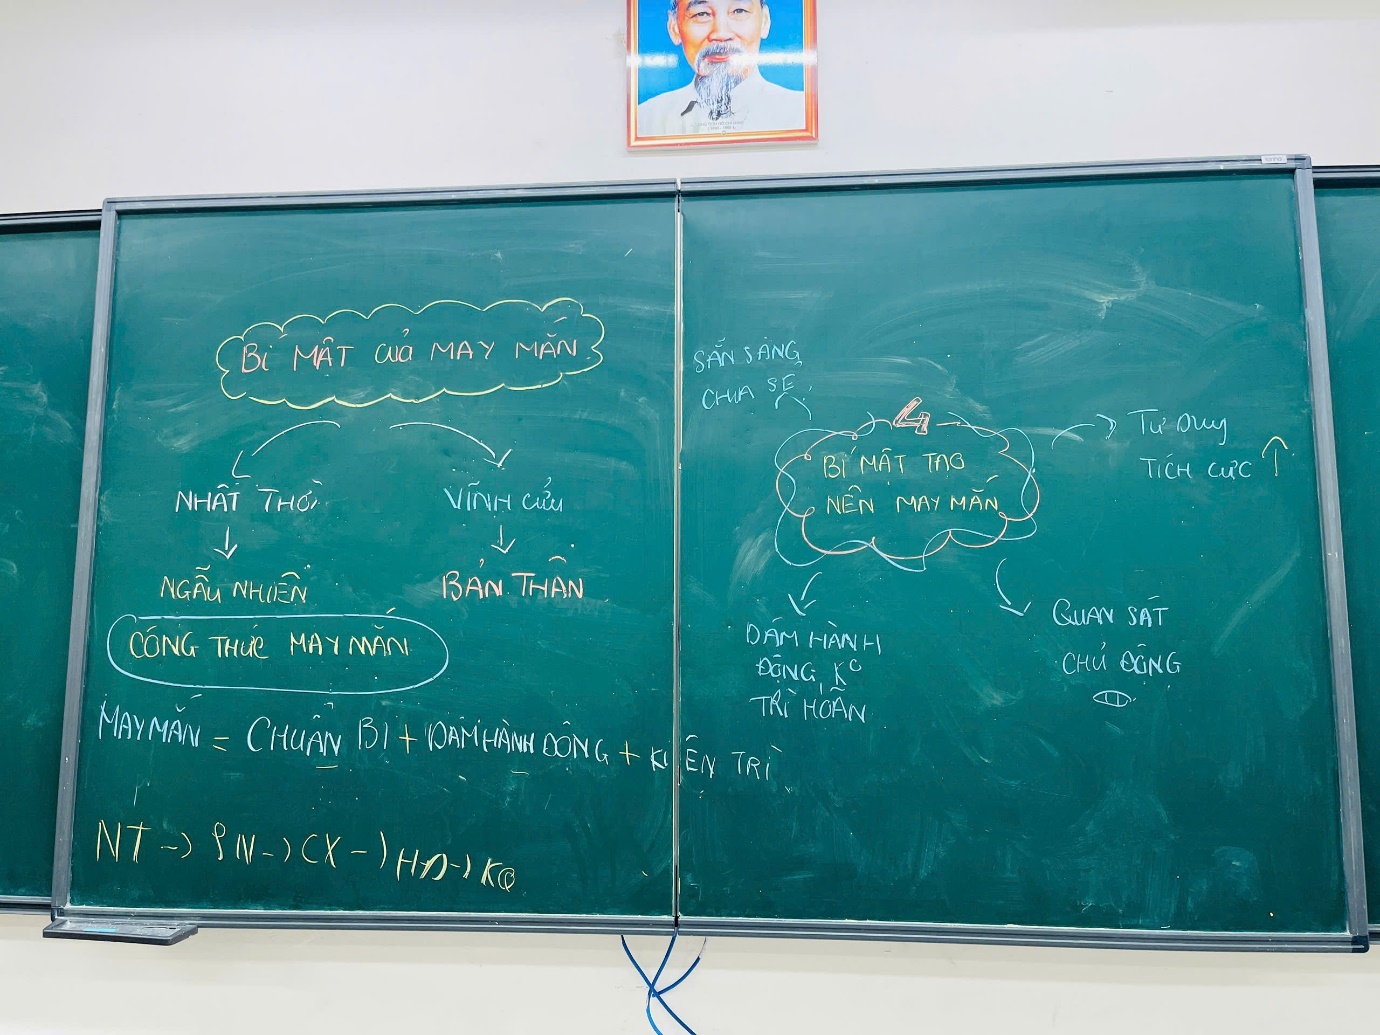 BÍ MẬT CỦA MAY MẮN
NHẤT THỜI
VĨNH CỬU
NGẪU NHIÊN
BẢN THÂN
CÔNG THỨC MAY MẮN
MAY MẮN = CHUẨN BỊ + DÁM HÀNH ĐỘNG + KIÊN TRÌ
NT -> SN -> CX -> HĐ -> KQ
SẴN SÀNG
CHIA SẺ
4
BÍ MẬT TẠO
NÊN MAY MẮN
TƯ DUY
TÍCH CỰC ↑
DÁM HÀNH
ĐỘNG, K°
TRÌ HOÃN
QUAN SÁT
CHỦ ĐỘNG